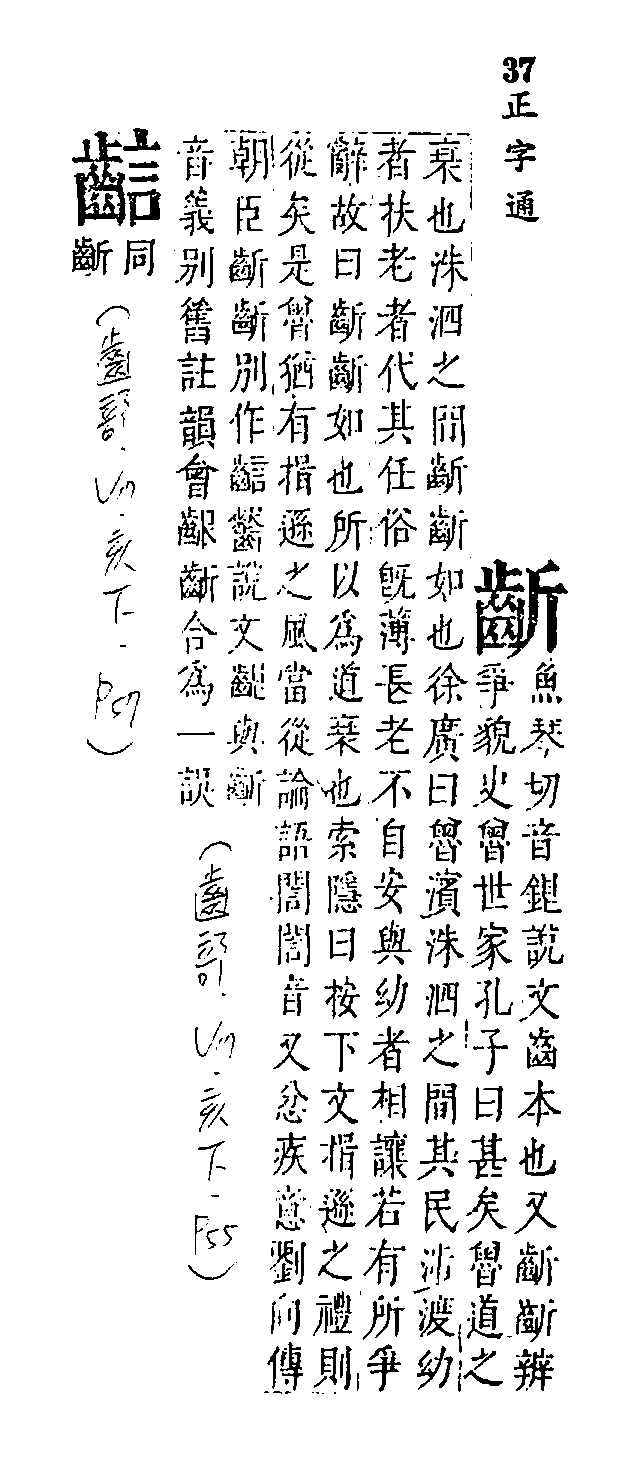 37 正字通
齗
魚琴切音銀說文齒本也又齗齗辨
爭貌史魯世家孔子曰甚矣魯道之
衰也洙泗之間齗齗如也徐廣曰魯濱洙泗之間其民涉渡幼
者扶老者代其任俗旣薄長老不自安與幼者相讓若有所爭
辭故曰齗齗如也所以為道衰也索隱曰按下文揖遜之禮則
從矣是魯猶有揖遜之風當從論語誾誾音又忿疾意劉向傳
朝臣齗齗別作說文與齗
音義別舊註韻會齦齗合為一誤
(齒部.亥下.P55)
同齗
(齒部.亥下.P57)